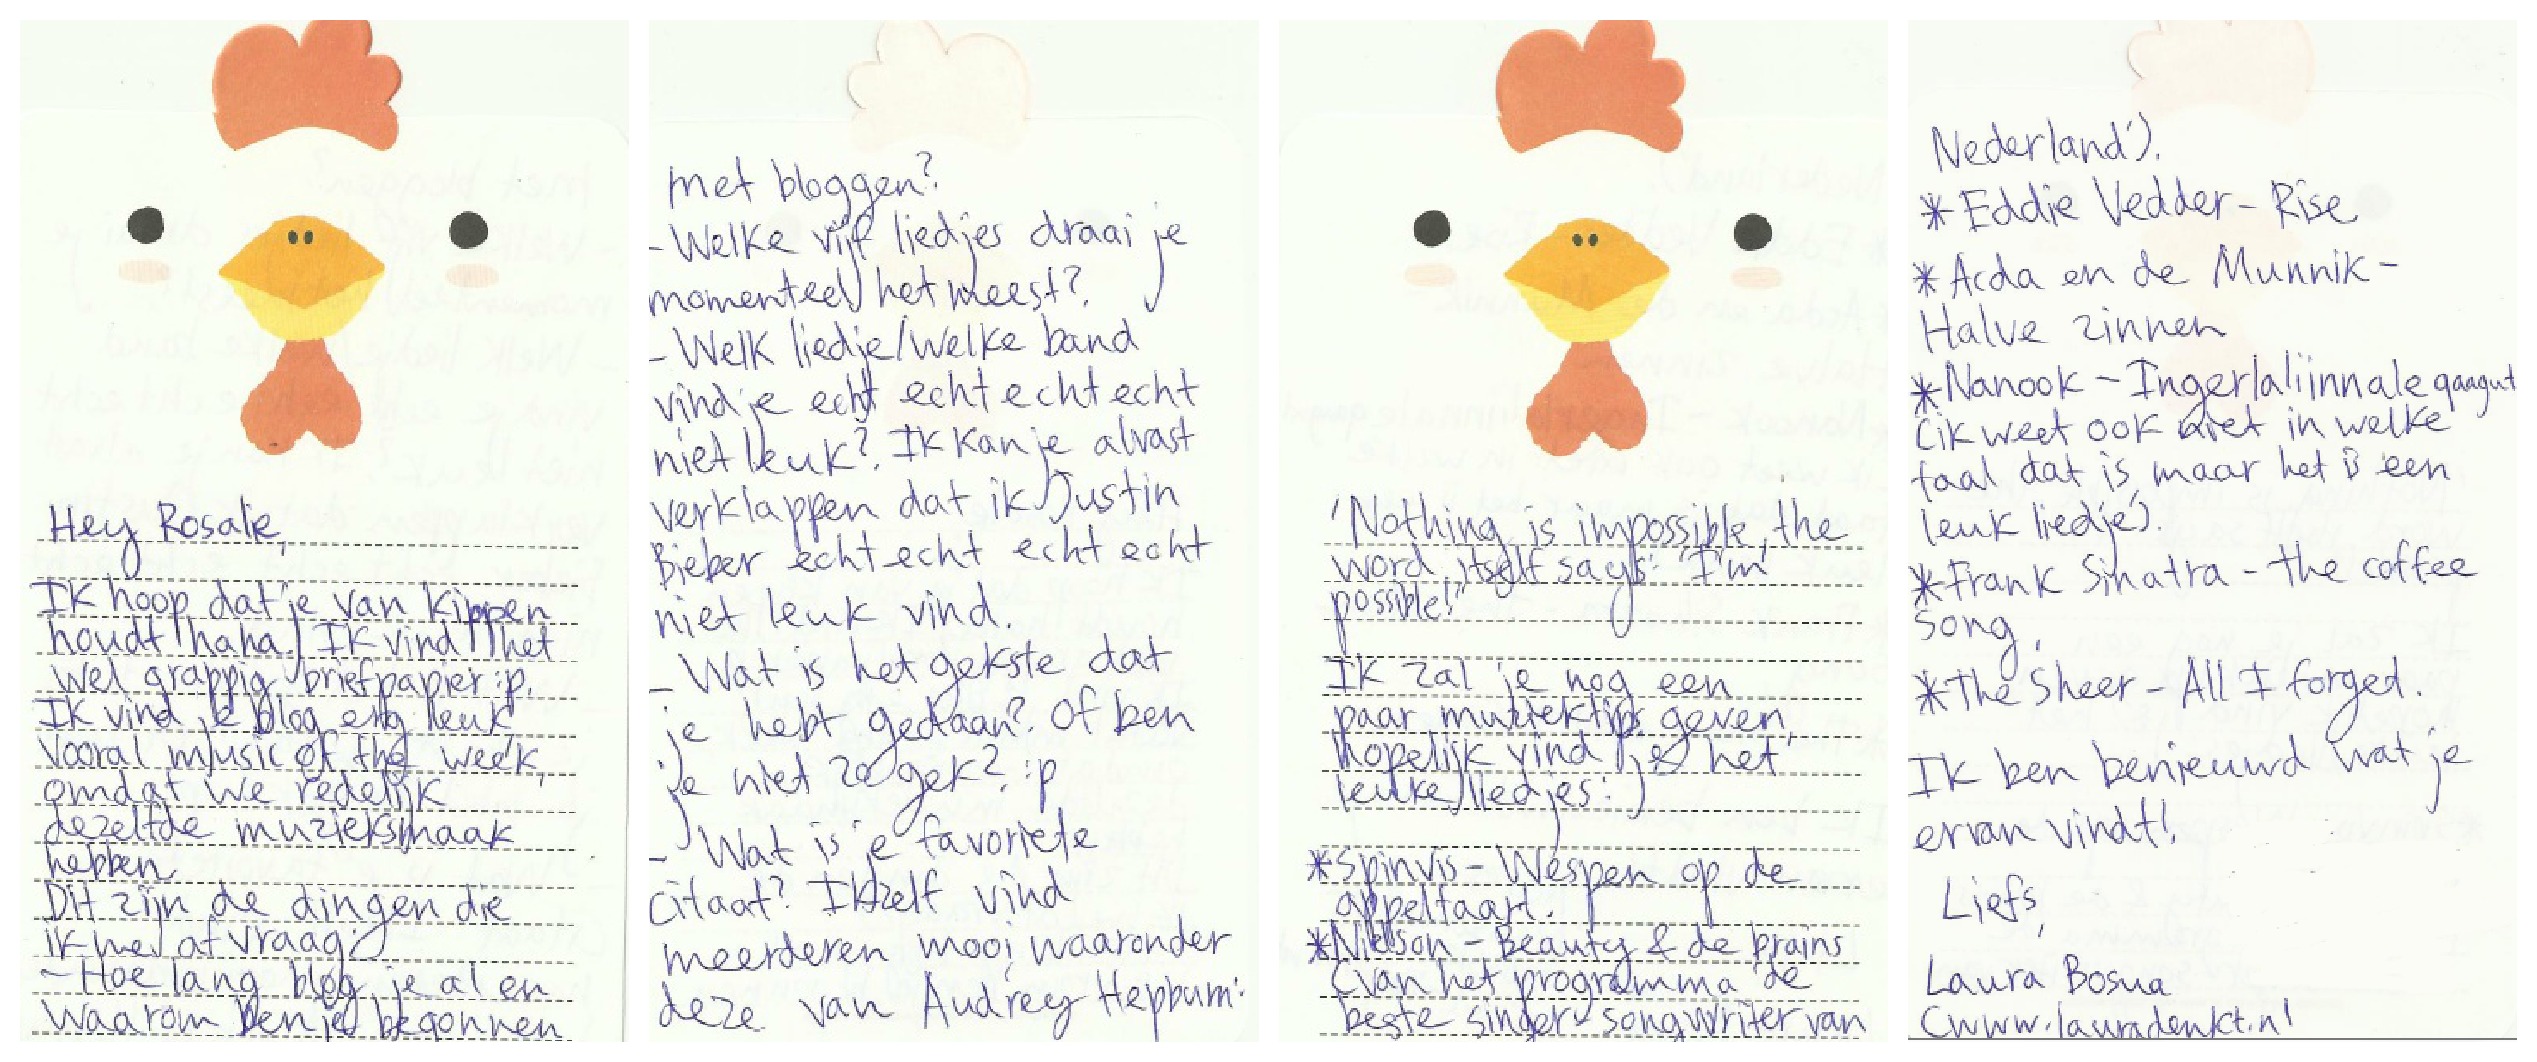 Hey Rosalie,
Ik hoop dat je van kippen
houdt haha. Ik vind het
wel grappig briefpapier :p.
Ik vind je blog erg leuk,
vooral music of the week,
omdat we redelijk
dezelfde muzieksmaak
hebben.
Dit zijn de dingen die
ik me afvraag:
- Hoe lang blog je al en
waarom ben je begonnen
met bloggen?
- Welke vijf liedjes draai je
momenteel het meest?
- Welk liedje/welke band
vind je echt echt echt echt
niet leuk? Ik kan je alvast
verklappen dat ik Justin
Bieber echt echt echt echt
niet leuk vind.
- Wat is het gekste dat
je hebt gedaan? Of ben
je niet zo gek? :p
- Wat is je favoriete
citaat? Ikzelf vind
meerderen mooi waaronder
deze van Audrey Hepburn:
'Nothing is impossible, the
word itself says: 'I'm
possible!'
Ik zal je nog een
paar muziektips geven,
hopelijk vind je het
leuke liedjes :)
*Spinvis - Wespen op de
appeltaart.
*Nielson - Beauty & de brains
(van het programma 'de
beste singer-songwriter van
Nederland').
*Eddie Vedder - Rise
*Acda en de Munnik -
Halve zinnen
*Nanook - Ingerlaliinnaleqaagut
(ik weet ook niet in welke
taal dat is, maar het is een
leuk liedje).
*Frank Sinatra - the coffee
song.
*The Sheer - All I forged.
Ik ben benieuwd wat je
ervan vindt!
Liefs,
Laura Bosua
(www.lauradenkt.nl